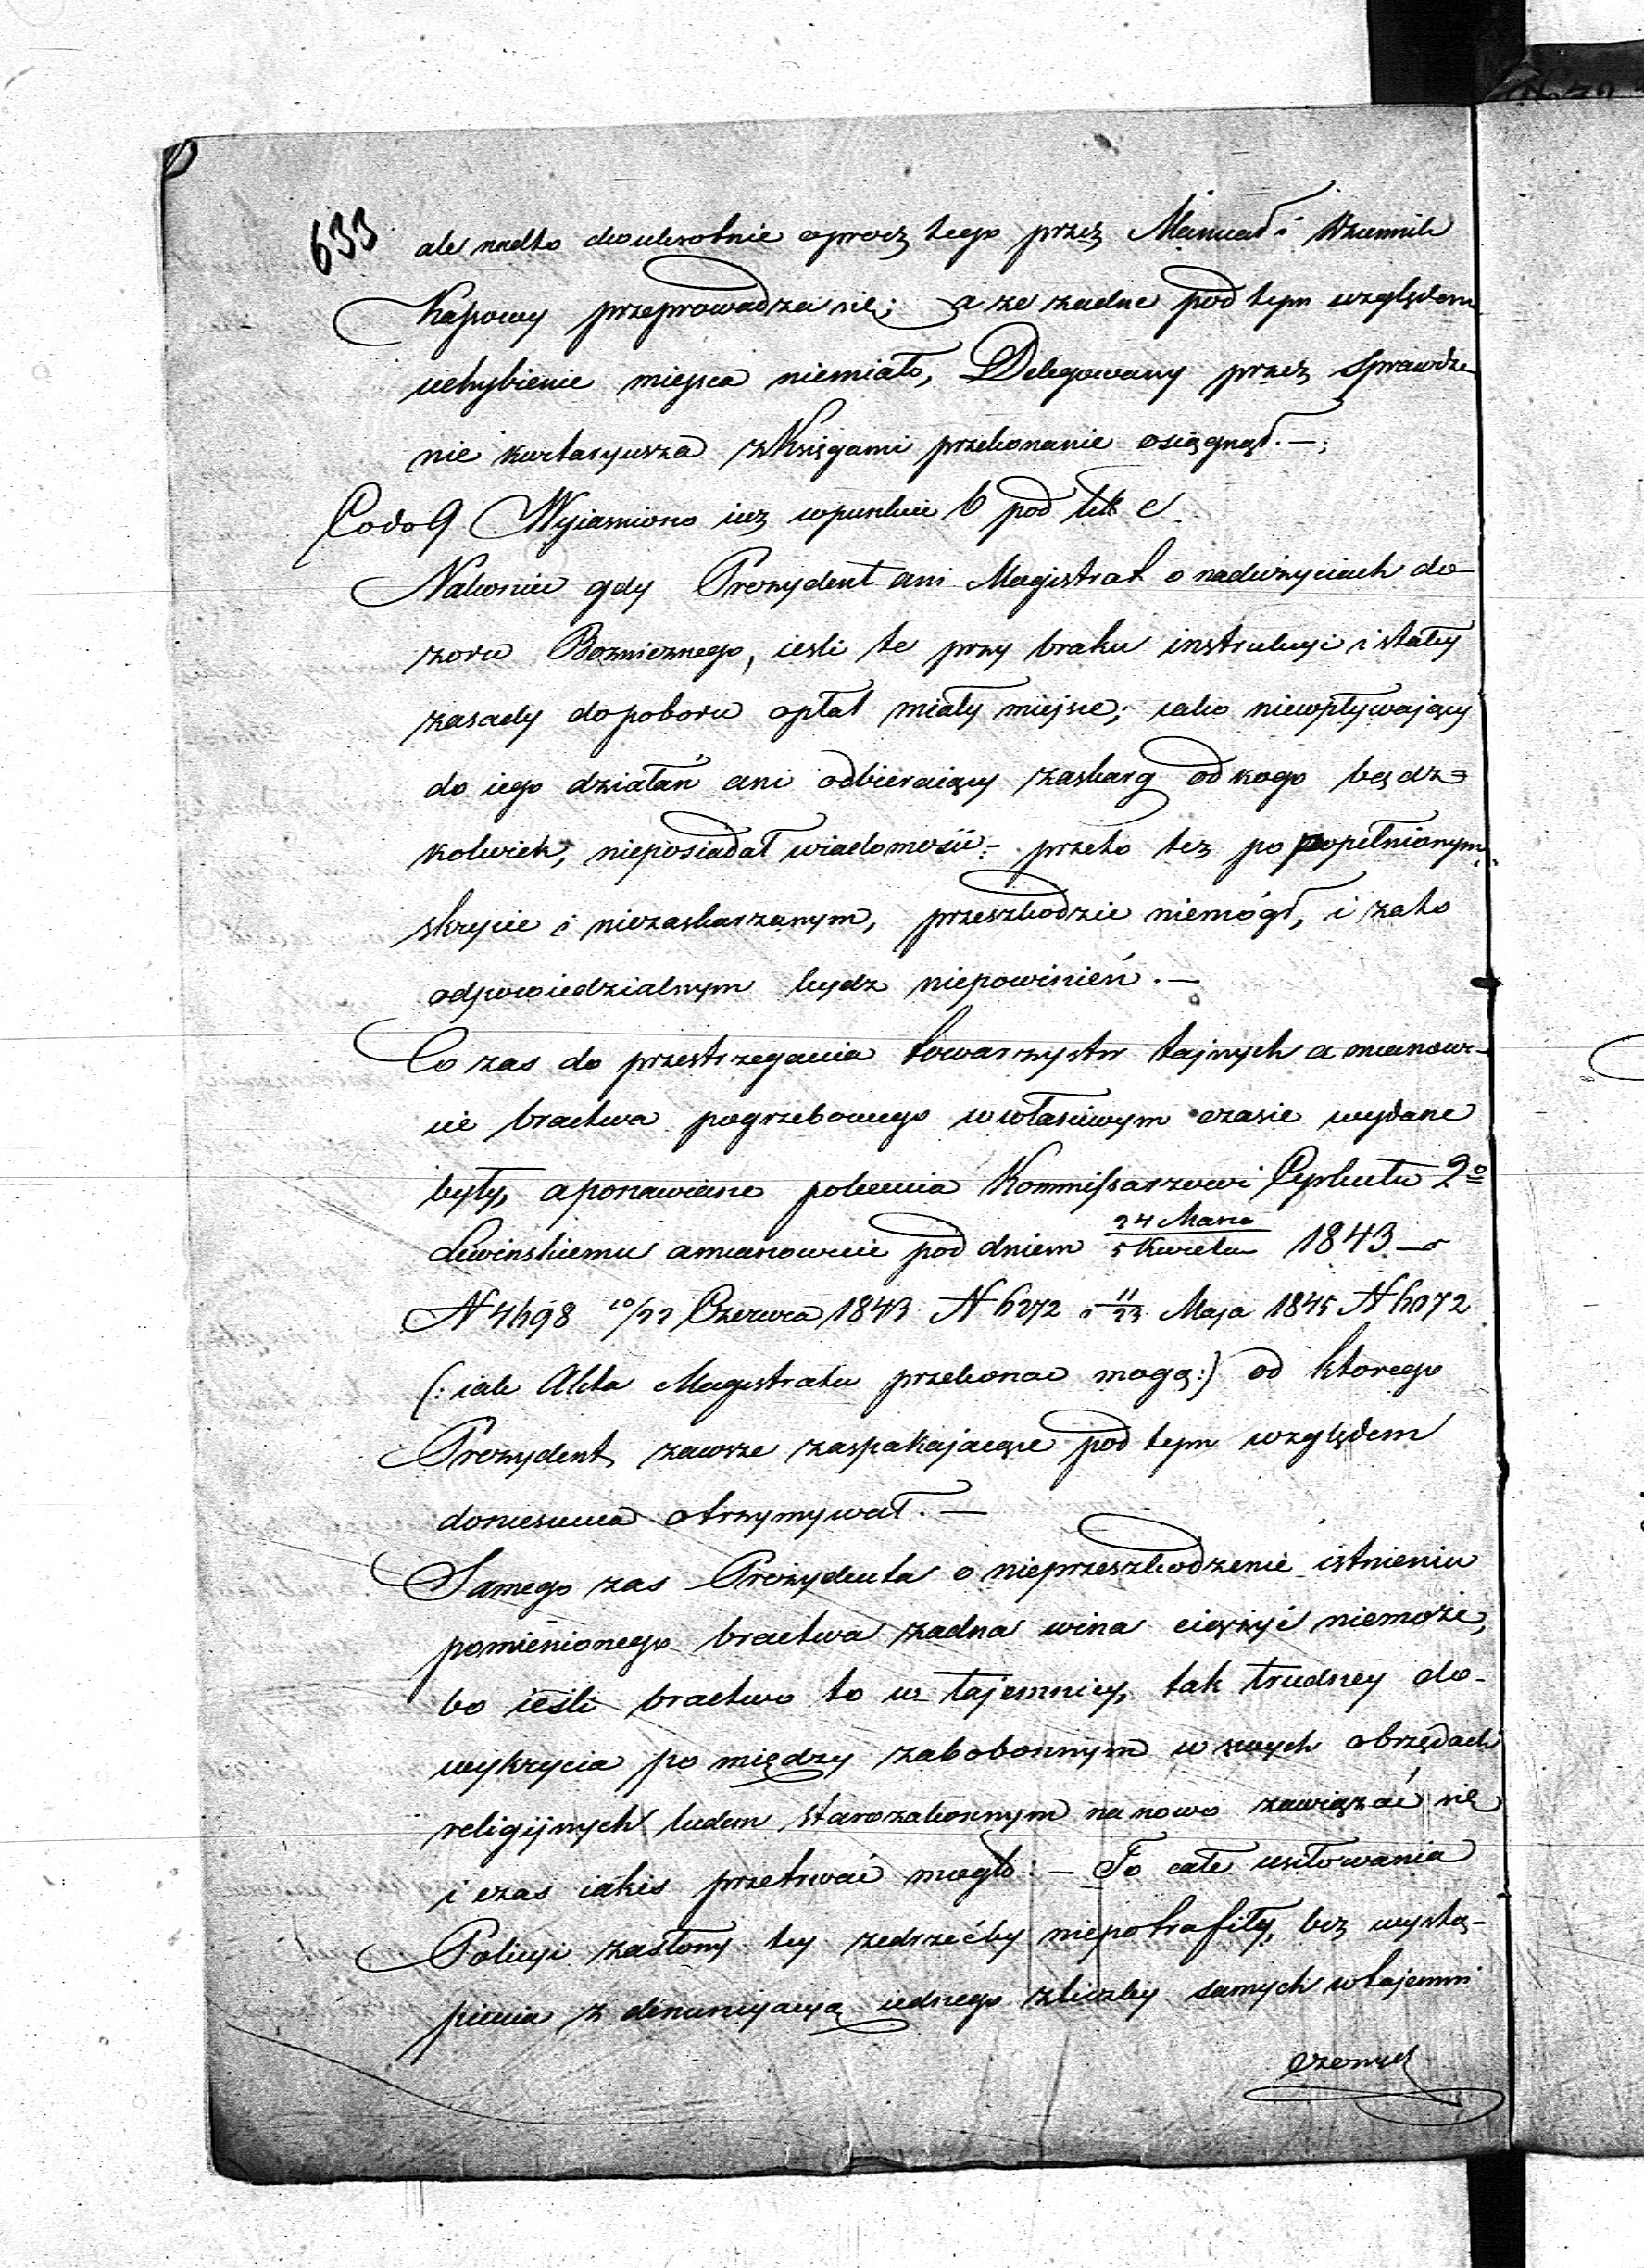 633
ale nadto dwukrotnie oprocz tego przez Manuał i Dziennik
Kassowy przeprowadza się; a ze zadne pod tym względem
uchybienie miejsca niemiało, Delegowany przez sprawdze
nie kwitaryusza z Księgami przekonanie osiągnął. —
Co do 9 Wyiasniono iuz w punkcie 6 pod litt: e.
Nakoniec gdy Prezydent ani Magistrat o naduzyciach do-
zoru Boznicznego, iesli te przy braku instrukcyi i stałey
zasady do poboru opłat miały miejsce; iako niewpływający
do iego działań ani odbieraiący zaskarg od kogo bądz=
kolwiek, nieposiadał wiadomości:- przeto tez po popełnionym
skrycie i niezaskarzanym, przeszkodzic niemógł, i za to
odpowiedzialnym bydz niepowinień. —
Co zas do przestrzegania towarzystw tajnych a mianowi-
cie bractwa pogrzebowego w właściwym czasie wydane
były, a ponawiane polecenia Kommissarzowi Cyrkułu 2º
Lewinskiemu a mianowicie pod dniem 24 Marca / 5 Kwietnia 1843 r
N 4698 10/22 Czerwca 1843 N 6272 i 11/23 Maja 1845 N
(: iak Akta Magistratu przekonac mogą:) od ktorego
Prezydent zawsze zaspakajaiące pod tym względem
doniesienia otrzymywał. —
Samego zas Prezydenta o nieprzeszkodzenie istnieniu
pomienionego bractwa zadna wina ciążyć niemoże,
bo ieśli bractwo to w tajemnicy, tak trudney do-
wykrycia po między zabobonnym w swych obrzędach
religijnych ludem starozakonnym na nowo zawiązać się
i czas iakis przetrwać mogło: — To całe usiłowania
Policyi zasłony tey zedrzećby niepotrafiły, bez wystą-
pienia z denuncyacyą iednego z liczby samych wtajemni
czonych